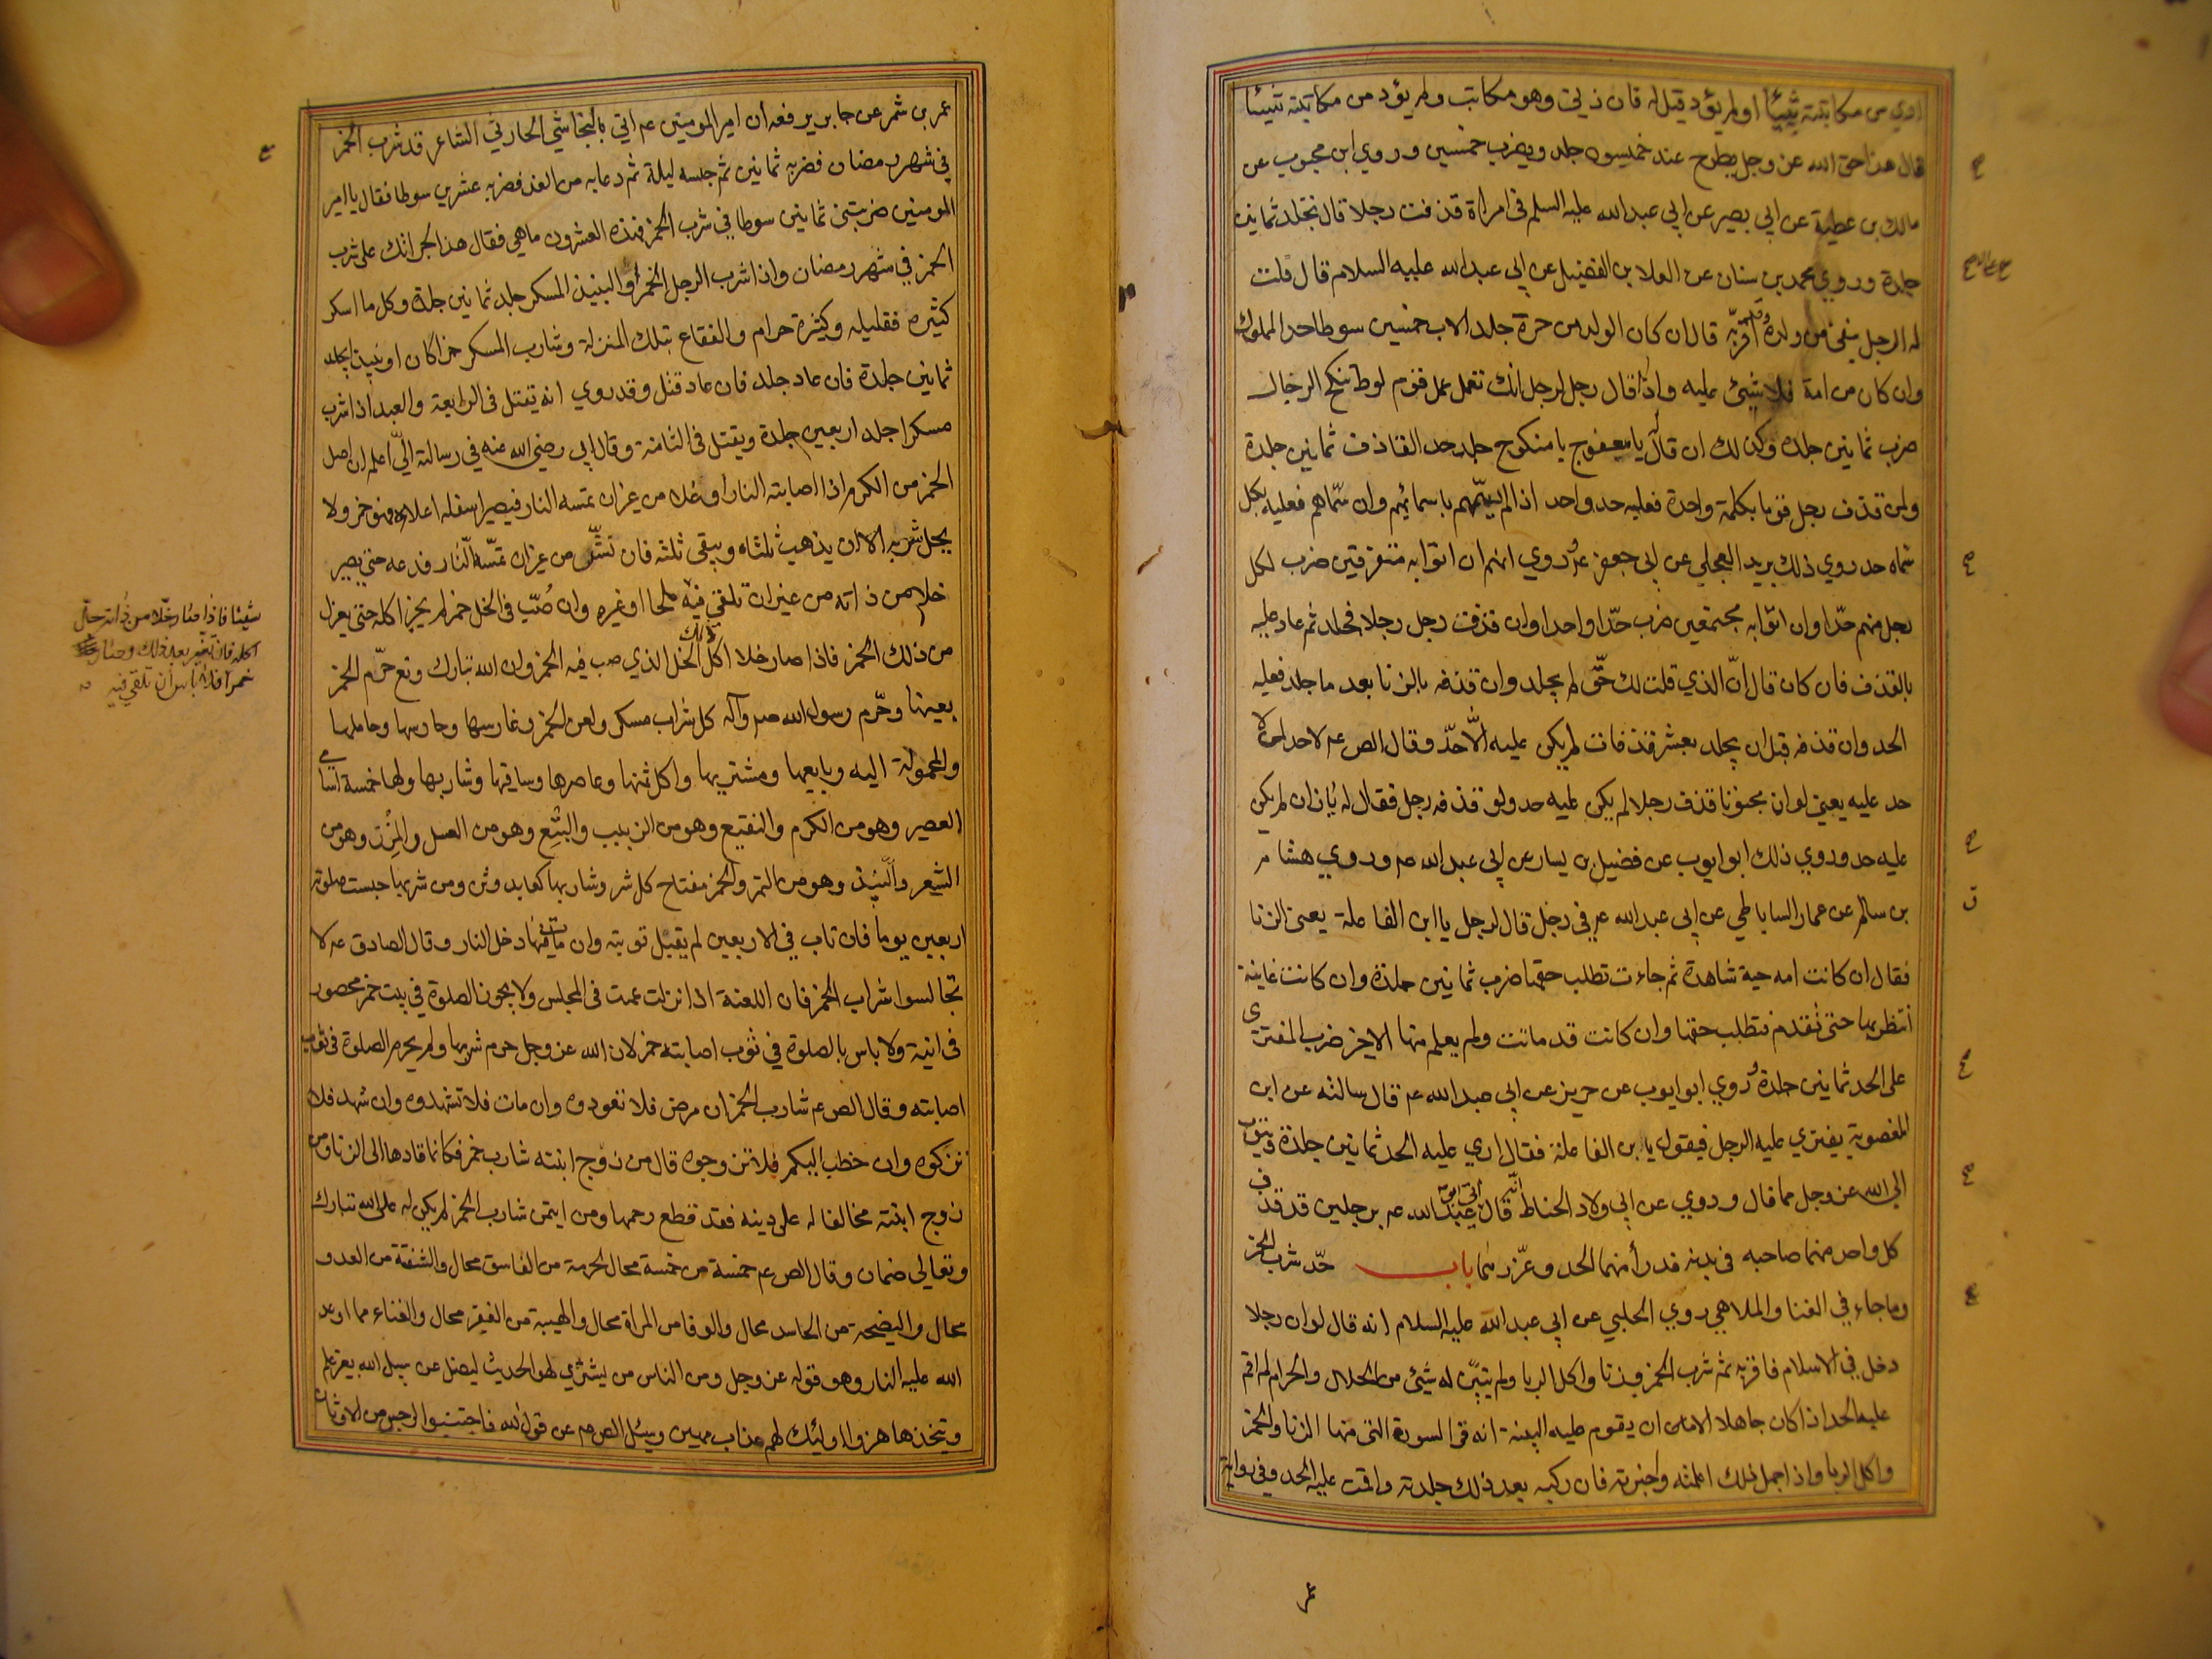 ادي من مكاتبته شيئا او لم يؤد قيل له فان زني وهو مكاتب ولم يؤد من مكاتبته شيئا
قال هذا حق الله عز وجل يطرح عنه خمسون جلدة ويضرب خمسين وروي ابن محبوب عن
مالك بن عطية عن ابي بصير عن ابي عبد الله عليه السلم في امراة قذفت رجلا قال تجلد ثمانين
جلدة وروي محمد بن سنان عن العلا بن الفضيل عن ابي عبد الله عليه السلام قال قلت
له الرجل ينفي من ولده وقد اقر به قال ان كان الولد من حرة جلد الاب خمسين سوطا حد المملوك
وان كان من امة فلا شيئ عليه واذا قال رجل لرجل انك تعمل عمل قوم لوط تنكح الرجال
ضرب ثمانين جلدة وكذلك ان قال يا معفوج يا منكوح جلد حد القاذف ثمانين جلدة
وان قذف رجل قوما بكلمة واحدة فعليه حد واحد اذا لم يسمهم باسمائهم وان سماهم فعليه بكل
سماه حد روي ذلك بريد العجلي عن ابي جعفر ع وروي انهم ان اتوا به متفرقين ضرب لكل
رجل منهم حدا وان اتوا به مجتمعين ضرب حدا واحدا وان قذف رجل رجلا فجلد ثم عاد عليه
بالقذف فان كان قال ان الذي قلت لك حق لم يجلد وان قذفه بالزنا بعد ما جلد فعليه
الحد وان قذفه قبل ان يجلد بعشر قذفات لم يكن عليه الا حد وقال الص عم لاحد لمن لا
حد عليه يعني لو ان مجنونا قذف رجلا لم يكن عليه حد ولو قذفه رجل فقال له يا زان لم يكن
عليه حد وروي ذلك ابو ايوب عن فضيل بن يسار عن ابي عبد الله عم وروي هشام
بن سالم عن عمار الساباطي عن ابي عبد الله عم في رجل قال لرجل يا ابن الفاعلة يعني الزنا
فقال ان كانت امه حية شاهدة ثم جاءت تطلب حقها ضرب ثمانين جلدة وان كانت غايبة
انتظر بها حتى تقدم فتطلب حقها وان كانت قد ماتت ولم يعلم منها الا خير ضرب المفترى
على الحد ثمانين جلدة وروي ابو ايوب عن حريز عن ابي عبد الله عم قال سالته عن ابن
المغصوبة يفتري عليه الرجل فيقول يا بن الفاعلة فقال اري عليه الحد ثمانين جلدة ويتوب
الى الله عز وجل مما قال وروي عن ابي ولاد الحناط انه قال اتى ابو عبد الله عم برجلين قد قذف
كل واحد منهما صاحبه في بدنه فدرأ عنهما الحد وعزرهما باب حد شرب الخمر
وما جاء في الغنا والملاهي روي الحلبي عن ابي عبد الله عليه السلام انه قال لو ان رجلا
دخل في الاسلام فاقر به ثم شرب الخمر وزنا واكل الربا ولم يتبين له شيئ من الحلال والحرام لم اقم
عليه الحد اذا كان جاهلا الا ان يقوم عليه البينة انه قرا السورة التي منها الزنا والخمر
واكل الربا واذا جهل ذلك اعلمته واخبرته فان ركبه بعد ذلك جلدته واقمت عليه الحد وفي رواية
عمر
عمر بن شمر عن جابر يرفعه ان امير المومنين عم اتي بالنجاشي الحارثي الشاعر قد شرب الخمر
في شهر رمضان فضربه ثمانين ثم حبسه ليلة ثم دعا به من الغد فضربه عشرين سوطا فقال يا امير
المومنين ضربتني ثمانين سوطا في شرب الخمر فهذه العشرون ما هي فقال هذا لجرأتك على شرب
الخمر في شهر رمضان واذا شرب الرجل الخمر او النبيذ المسكر جلد ثمانين جلدة وكل ما اسكر
كثيره فقليله وكثيره حرام والفقاع بتلك المنزلة وشارب المسكر خمرا كان او نبيذا يجلد
ثمانين جلدة فان عاد جلد فان عاد قتل وقد روي انه يقتل في الرابعة والعبد اذا شرب
مسكرا جلد اربعين جلدة ويقتل في الثامنة وقال ابي رضي الله عنه في رسالته الي اعلم ان اصل
الخمر من الكرم اذا اصابته النار او غلا من غير ان تمسه النار فيصير اسفله اعلاه فهو خمر ولا
يحل شربه الا ان يذهب ثلثاه ويبقى ثلثه فان نش من غير ان تمسه النار فدعه حتى يصير
خلا من ذاته من غير ان تلقي فيه ملحا او غيره وان صب في الخل خمر لم يجز اكله حتى يعزل
من ذلك الخمر فاذا صار خلا اكل ذلك الخل الذي صب فيه الخمر وان الله تبارك وتع حرم الخمر
بعينها وحرم رسول الله صم وآله كل شراب مسكر ولعن الخمر وغارسها وحارسها وحاملها
والمحمولة اليه وبايعها ومشتريها واكل ثمنها وعاصرها وساقيها وشاربها ولها خمسة اسامي
العصير وهو من الكرم والنقيع وهو من الزبيب والبتع وهو من العسل والمزر وهو من
الشعير والنبيذ وهو من التمر والخمر مفتاح كل شر وشاربها كعابد وثن ومن شربها حبست صلوته
اربعين يوما فان تاب في الاربعين لم يقبل توبته وان مات فيها دخل النار وقال الصادق عم لا
تجالسوا شراب الخمر فان اللعنة اذا نزلت عمت في المجلس ولا يجوز الصلوة في بيت خمر محصور
في انية ولا باس بالصلوة في ثوب اصابته خمر لان الله عز وجل حرم شربها ولم يحرم الصلوة في ثوب
اصابته وقال الص عم شارب الخمر ان مرض فلا تعودوه وان مات فلا تشهدوه وان شهد فلا
تزكوه وان خطب اليكم فلا تزوجوه قال من زوج ابنته شارب خمر فكانما قادها الى الزنا ومن
زوج ابنته مخالفا له على دينه فقد قطع رحمها ومن ايتمن شارب الخمر لم يكن له على الله تبارك
وتعالى ضمان وقال الص عم خمسة من خمسة محال الحرمة من الفاسق محال والشفقة من العدو
محال والنصيحة من الحاسد محال والوفا من المراة محال والهيبة من الفقير محال والغناء مما اوعد
الله عليه النار وهو قوله عز وجل ومن الناس من يشتري لهو الحديث ليضل عن سبيل الله بغير علم
ويتخذها هزوا اولئك لهم عذاب مهين وسئل الص عم عن قول الله فاجتنبوا الرجس من الاوثان
شيئا فاذا صار خلا من ذاته حل
اكله فان تغير بعد ذلك وصار
خمرا فلا باس ان تلقي فيه